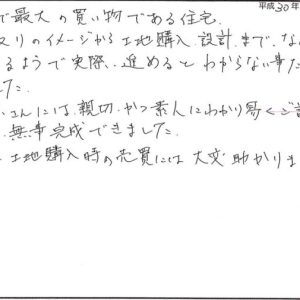 平成30年
で最大の買い物である住宅.
スリのイメージから土地購入.設計まで.な
るようで実際.進めるとわからない事だ
した.
さんには.親切.かつ素人にわかり易くご
.無事完成できました.
.土地購入時の売買には大変助かりま